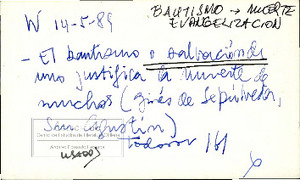 W 14-5-89
BAUTISMO → MUERTE
EVANGELIZACION
- El bautismo o salvación de
uno justifica la muerte de
muchos (Ginés de Sepúlveda,
San Agustín)
Todorov 161
USADO